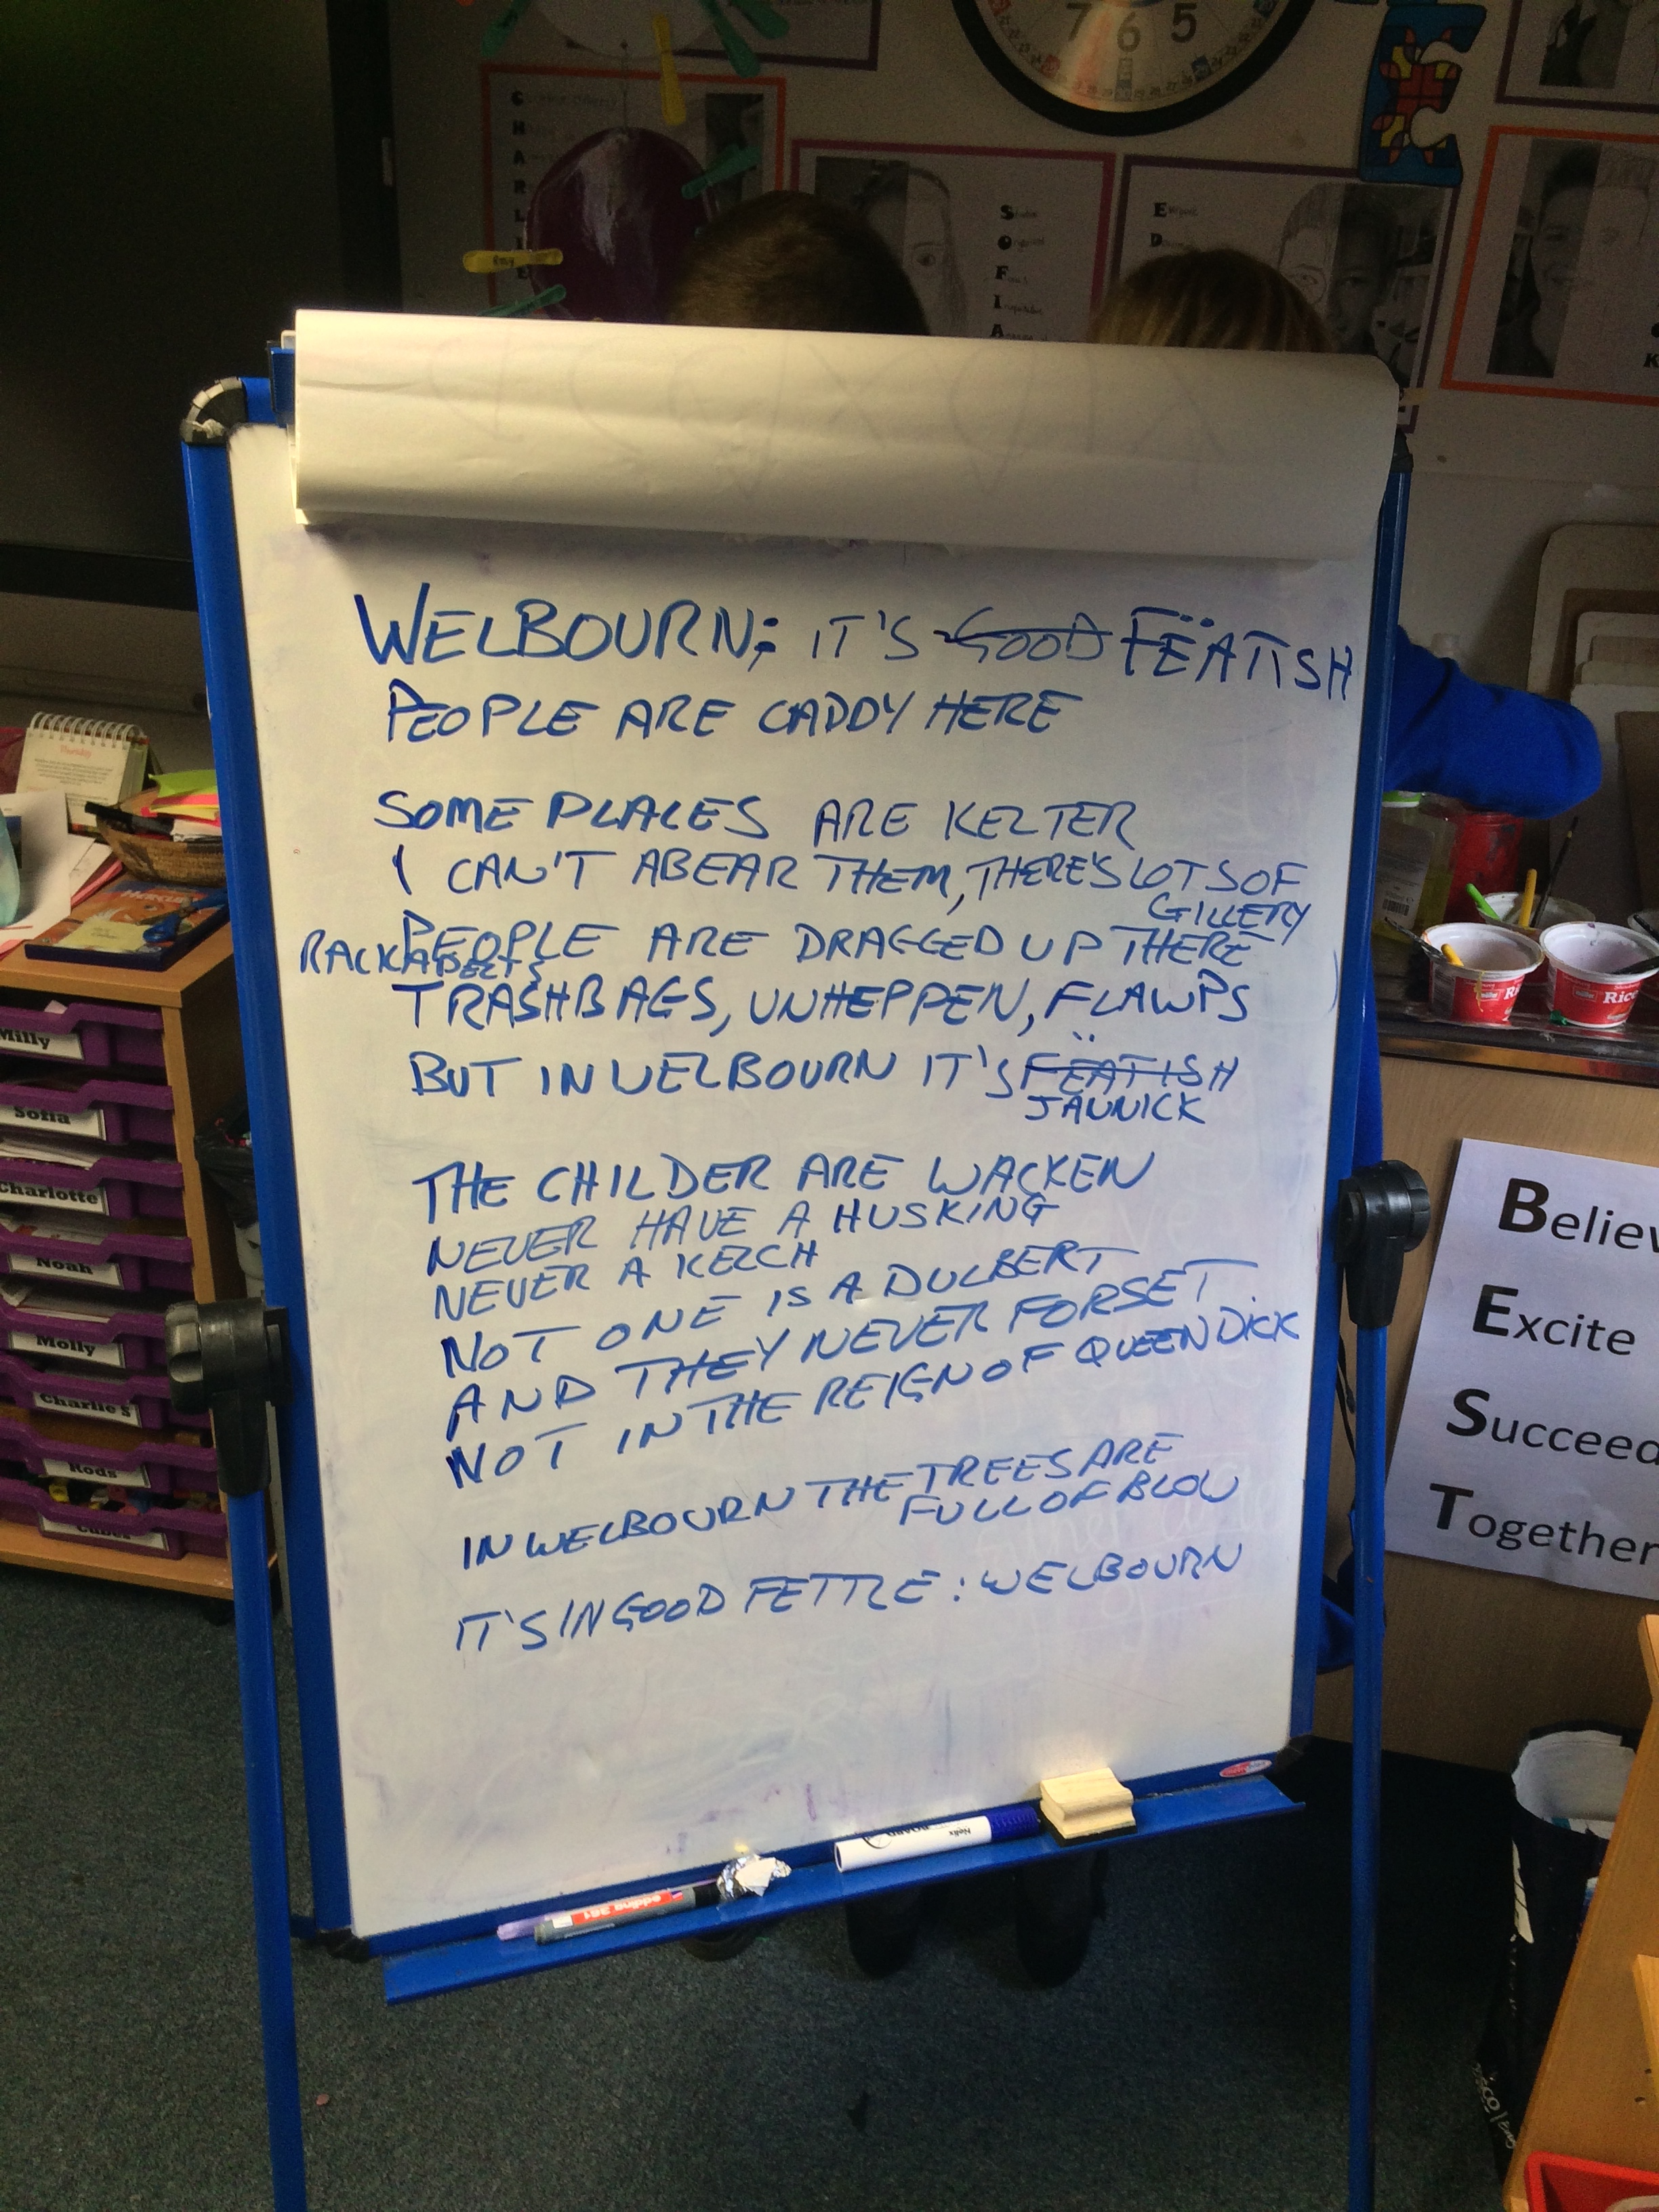 7 6 5
CHARLIE
SOFIA
E
D
WELBOURN; IT'S GOOD FËÄTISH
PEOPLE ARE CADDY HERE
SOME PLACES ARE KELTER
I CAN'T ABEAR THEM, THERE'S LOTS OF
GILLERY
PEOPLE ARE DRAGGED UP THERE
RACKABELTS
TRASHBAGS, UNHEPPEN, FLAWPS
BUT IN WELBOURN IT'S FËÄTISH
JANNICK
THE CHILDER ARE WACKEN
NEVER HAVE A HUSKING
NEVER A KELCH
NOT ONE IS A DULBERT
AND THEY NEVER FORSET
NOT IN THE REIGN OF QUEEN DICK
IN WELBOURN THE TREES ARE
FULL OF BLOW
IT'S IN GOOD FETTLE: WELBOURN
Thursday
Milly
Sofia
Charlotte
Noah
Molly
Charlie S
Rods
Cubes
Rice
Believ
Excite
Succeed
Together
Nobo
edding 361